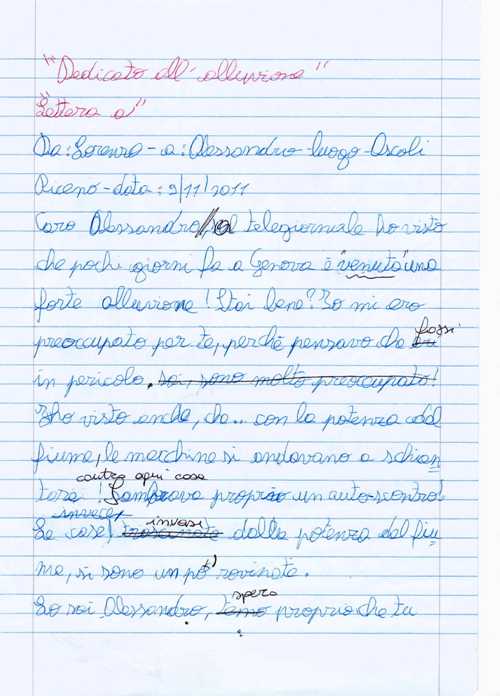 "Dedicato all'alluvione"
"Lettera a"
Da: Lorenzo - a: Alessandro - luogo - Ascoli
Piceno - data: 9/11/2011
Caro Alessandro, al telegiornale ho visto
che pochi giorni fa a Genova è "venuta" una
forte alluvione! Stai bene? Io mi ero
preoccupato per te, perchè pensavo che fossi
in pericolo, sai, sono molto preoccupato!
Ho visto anche, che... con la potenza del
fiume, le macchine si andavano a schian
contro ogni cosa
tare! Sembrava proprio un auto-scontro!
invece,
Le case, invasi dalla potenza del fiu
me, si sono un pò rovinate.
spero
Lo sai Alessandro, temo proprio che tu